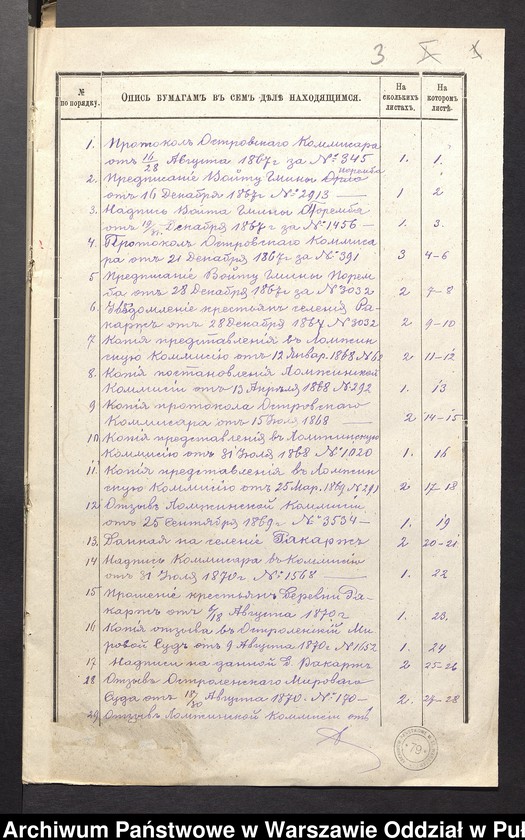 3 X X
№ по порядку.
Опись бумагамъ въ семъ дѣлѣ находящимся.
На сколькихъ листахъ.
На которомъ листѣ.
1. Протоколъ Островскаго Коммисара
отъ 16/28 Августа 1867 г за № 345 1. 1.
2. Предписаніе Войту Гмины Поремба
отъ 16 Декабря 1867 г № 2913 — 1 2
3. Надпись Войта Гмины Поремба
отъ 19/31 Декабря 1867 г за № 1456 — 1. 3.
4. Протоколъ Островскаго Коммиса
ра отъ 21 Декабря 1867 г за № 391 3 4-6
5 Предписаніе Войту Гмины Порем
ба отъ 28 Декабря 1867 г за № 3032 2 7-8
6. Увѣдомленіе крестьянъ селенія Ра-
картъ отъ 28 Декабря 1867 № 3032 2 9-10
7 Копія представленія въ Ломжин-
скую Коммисію отъ 12 Январ. 1868 № 62 2 11-12
8. Копія постановленія Ломжинской
Коммисіи отъ 13 Апрѣля 1868 № 292 1. 13
9 Копія протокола Островскаго
Коммисара отъ 15 Іюля 1868 — 2 14-15
10 Копія представленія въ Ломжинскую
Коммисію отъ 31 Іюля 1868 № 1020 1. 16
11. Копія представленія въ Ломжин
скую Коммисію отъ 25 Мар. 1869 № 291 2 17-18
12 Отзывъ Ломжинской Коммисіи
отъ 25 Сентября 1869 г № 3534 — 1. 19
13. Данная на селеніе Ракартъ 2 20-21
14 Надпись Коммисара въ Коммисіи
отъ 31 Іюля 1870 г. № 1568 — 1. 22
15 Прошеніе крестьянъ Деревни Ра-
картъ отъ 6/18 Августа 1870 г 1. 23.
16 Копія отзыва въ Остроленскій Ми
ровой Судъ отъ 9 Августа 1870 г № 1652 1. 24
17 Надписи на данной Д. Ракартъ 2 25-26
18 Отзывъ Остроленскаго Мироваго
Суда отъ 18/30 Августа 1870. № 170 — 2. 27-28
29. Отзывъ Ломжинской Коммисіи отъ
79
Archiwum Państwowe w Warszawie Oddział w Puł